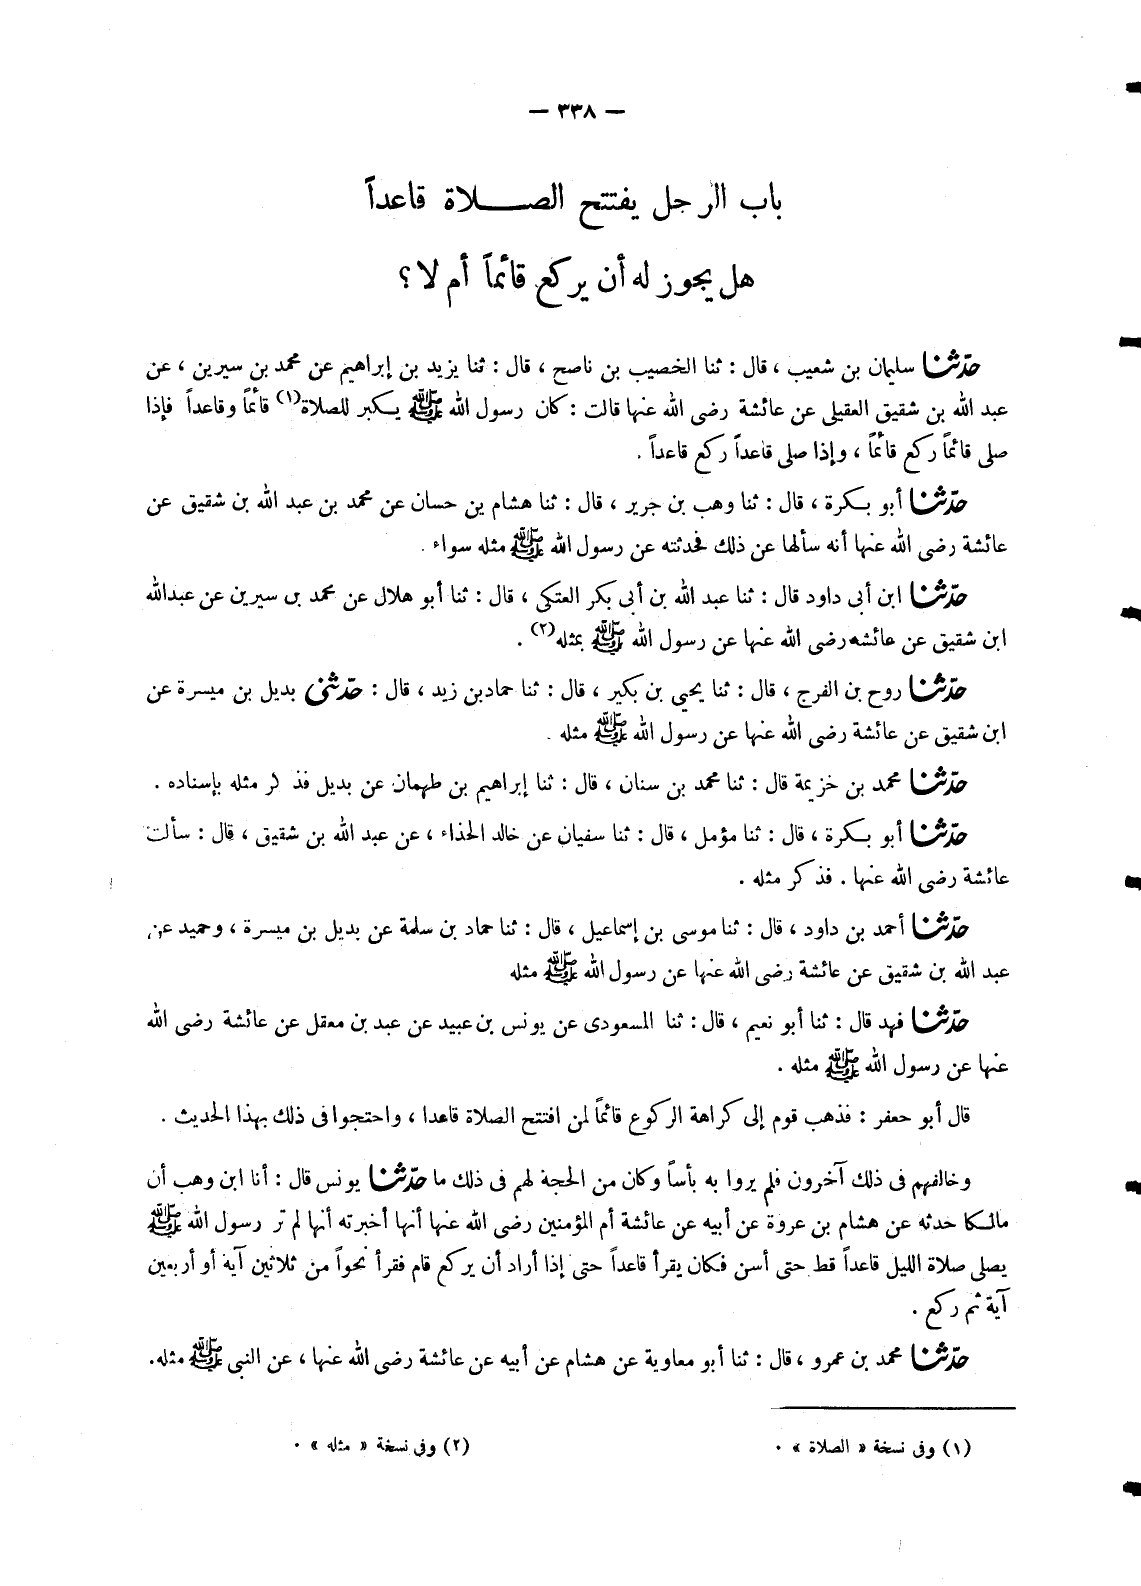 — ٣٣٨ —
باب الرجل يفتتح الصلاة قاعداً
هل يجوز له أن يركع قائماً أم لا ؟
حدّثنا سليمان بن شعيب ، قال : ثنا الخصيب بن ناصح ، قال : ثنا يزيد بن إبراهيم عن محمد بن سيرين ، عن
عبد الله بن شقيق العقيلى عن عائشة رضى الله عنها قالت : كان رسول الله ﷺ يكبر للصلاة(١) قائماً وقاعداً فإذا
صلى قائماً ركع قائماً ، وإذا صلى قاعداً ركع قاعداً .
حدّثنا أبو بكرة ، قال : ثنا وهب بن جرير ، قال : ثنا هشام بن حسان عن محمد بن عبد الله بن شقيق عن
عائشة رضى الله عنها أنه سألها عن ذلك فحدثته عن رسول الله ﷺ مثله سواء .
حدّثنا ابن أبى داود قال : ثنا عبد الله بن أبى بكر العتكى ، قال : ثنا أبو هلال عن محمد بن سيرين عن عبدالله
ابن شقيق عن عائشه رضى الله عنها عن رسول الله ﷺ بمثله(٢) .
حدّثنا روح بن الفرج ، قال : ثنا يحيي بن بكير ، قال : ثنا حمادبن زيد ، قال : حدّثنى بديل بن ميسرة عن
ابن شقيق عن عائشة رضى الله عنها عن رسول الله ﷺ مثله .
حدّثنا محمد بن خزيمة قال : ثنا محمد بن سنان ، قال : ثنا إبراهيم بن طهمان عن بديل فذ كر مثله بإسناده .
حدّثنا أبو بكرة ، قال : ثنا مؤمل ، قال : ثنا سفيان عن خالد الحذاء ، عن عبد الله بن شقيق ، قال : سألت
عائشة رضى الله عنها . فذكر مثله .
حدّثنا أحمد بن داود ، قال : ثنا موسى بن إسماعيل ، قال : ثنا حماد بن سلمة عن بديل بن ميسرة ، وحميد عن
عبد الله بن شقيق عن عائشة رضى الله عنها عن رسول الله ﷺ مثله
حدّثنا فهد قال : ثنا أبو نعيم ، قال : ثنا المسعودى عن يونس بن عبيد عن عبد بن معقل عن عائشة رضى الله
عنها عن رسول الله ﷺ مثله .
قال أبو جعفر : فذهب قوم إلى كراهة الركوع قائماً لمن افتتح الصلاة قاعدا ، واحتجوا فى ذلك بهذا الحديث .
وخالفهم فى ذلك آخرون فلم يروا به بأساً وكان من الحجة لهم فى ذلك ما حدّثنا يونس قال : أنا ابن وهب أن
مالكا حدثه عن هشام بن عروة عن أبيه عن عائشة أم المؤمنين رضى الله عنها أنها أخبرته أنها لم تر رسول الله ﷺ
يصلى صلاة الليل قاعداً قط حتى أسن فكان يقرأ قاعداً حتى إذا أراد أن يركع قام فقرأ نحواً من ثلاثين آية أو أربعين
آية ثم ركع .
حدّثنا محمد بن عمرو ، قال : ثنا أبو معاوية عن هشام عن أبيه عن عائشة رضى الله عنها ، عن النبى ﷺ مثله.
(١) وفى نسخة « الصلاة » .
(٢) وفى نسخة « مثله » .